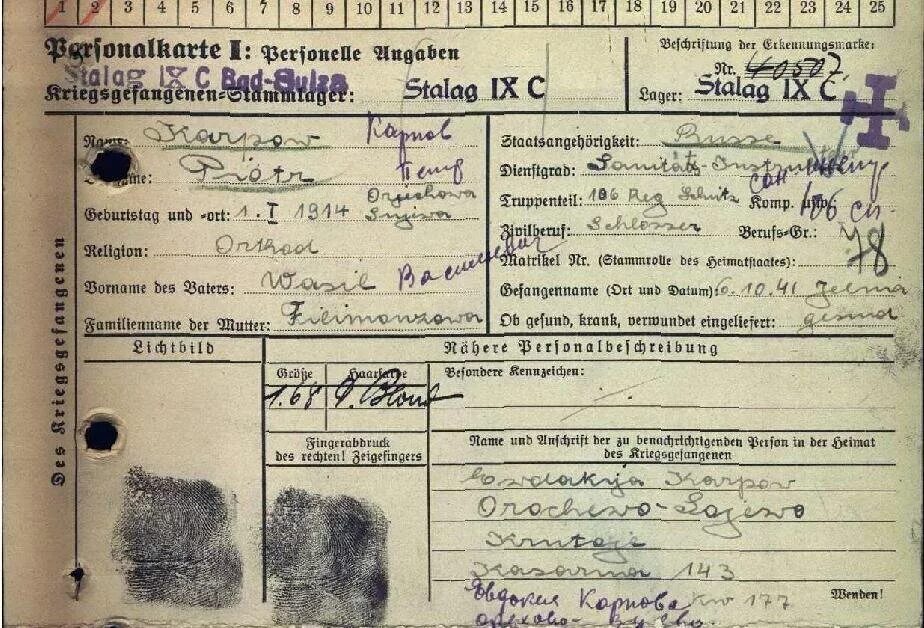 1 2 3 4 5 6 7 8 9 10 11 12 13 14 15 16 17 18 19 20 21 22 23 24 25
Personalkarte I: Personelle Angaben
Stalag IX C Bad-Sulza
Kriegsgefangenen-Stammlager: Stalag IX C
Beschriftung der Erkennungsmarke:
Nr. 40507.
Lager: Stalag IX C
Name: Karpow Карпов
Piotr Петр
Geburtstag und -ort: 1. I 1914 Orjechowa Sujewa
Religion: Ortkod
Vorname des Vaters: Wasil Василевич
Familienname der Mutter: Filimonzowa
Staatsangehörigkeit: Russe
Dienstgrad: Sanitäts-Instruktor
Truppenteil: 106 Reg Schütz Komp. usw.: 106 сп
Zivilberuf: Schlosser Berufs-Gr.: 78
Matrikel Nr. (Stammrolle des Heimatstaates):
Gefangennahme (Ort und Datum) 6. 10. 41 Jelnia
Ob gesund, krank, verwundet eingeliefert: gesund
Des Kriegsgefangenen
Lichtbild
Nähere Personalbeschreibung
Größe Haarfarbe Besondere Kennzeichen:
1.68 d. Blond
Fingerabdruck
des rechten! Zeigefingers
Name und Anschrift der zu benachrichtigenden Person in der Heimat
des Kriegsgefangenen
Ewdakija Karpow
Orochewo-Sojewo
Krutoje
Kasarma 143
Евдокия Карпова kw 177
Орехово-Зуево.
Wenden!